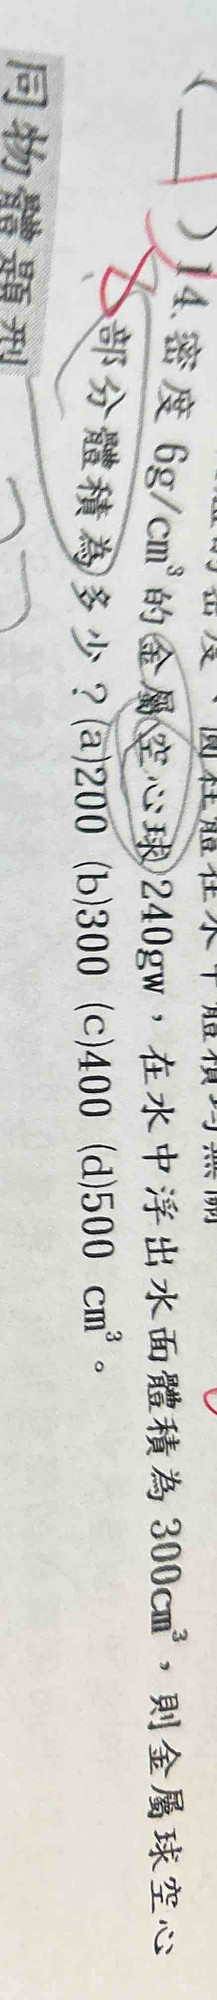 ( )14.密度 6g/cm³的金屬空心球240gw，在水中浮出水面體積為 300cm³，則金屬球空心
部分體積為多少？(a)200 (b)300 (c)400 (d)500 cm³。
同物體題型